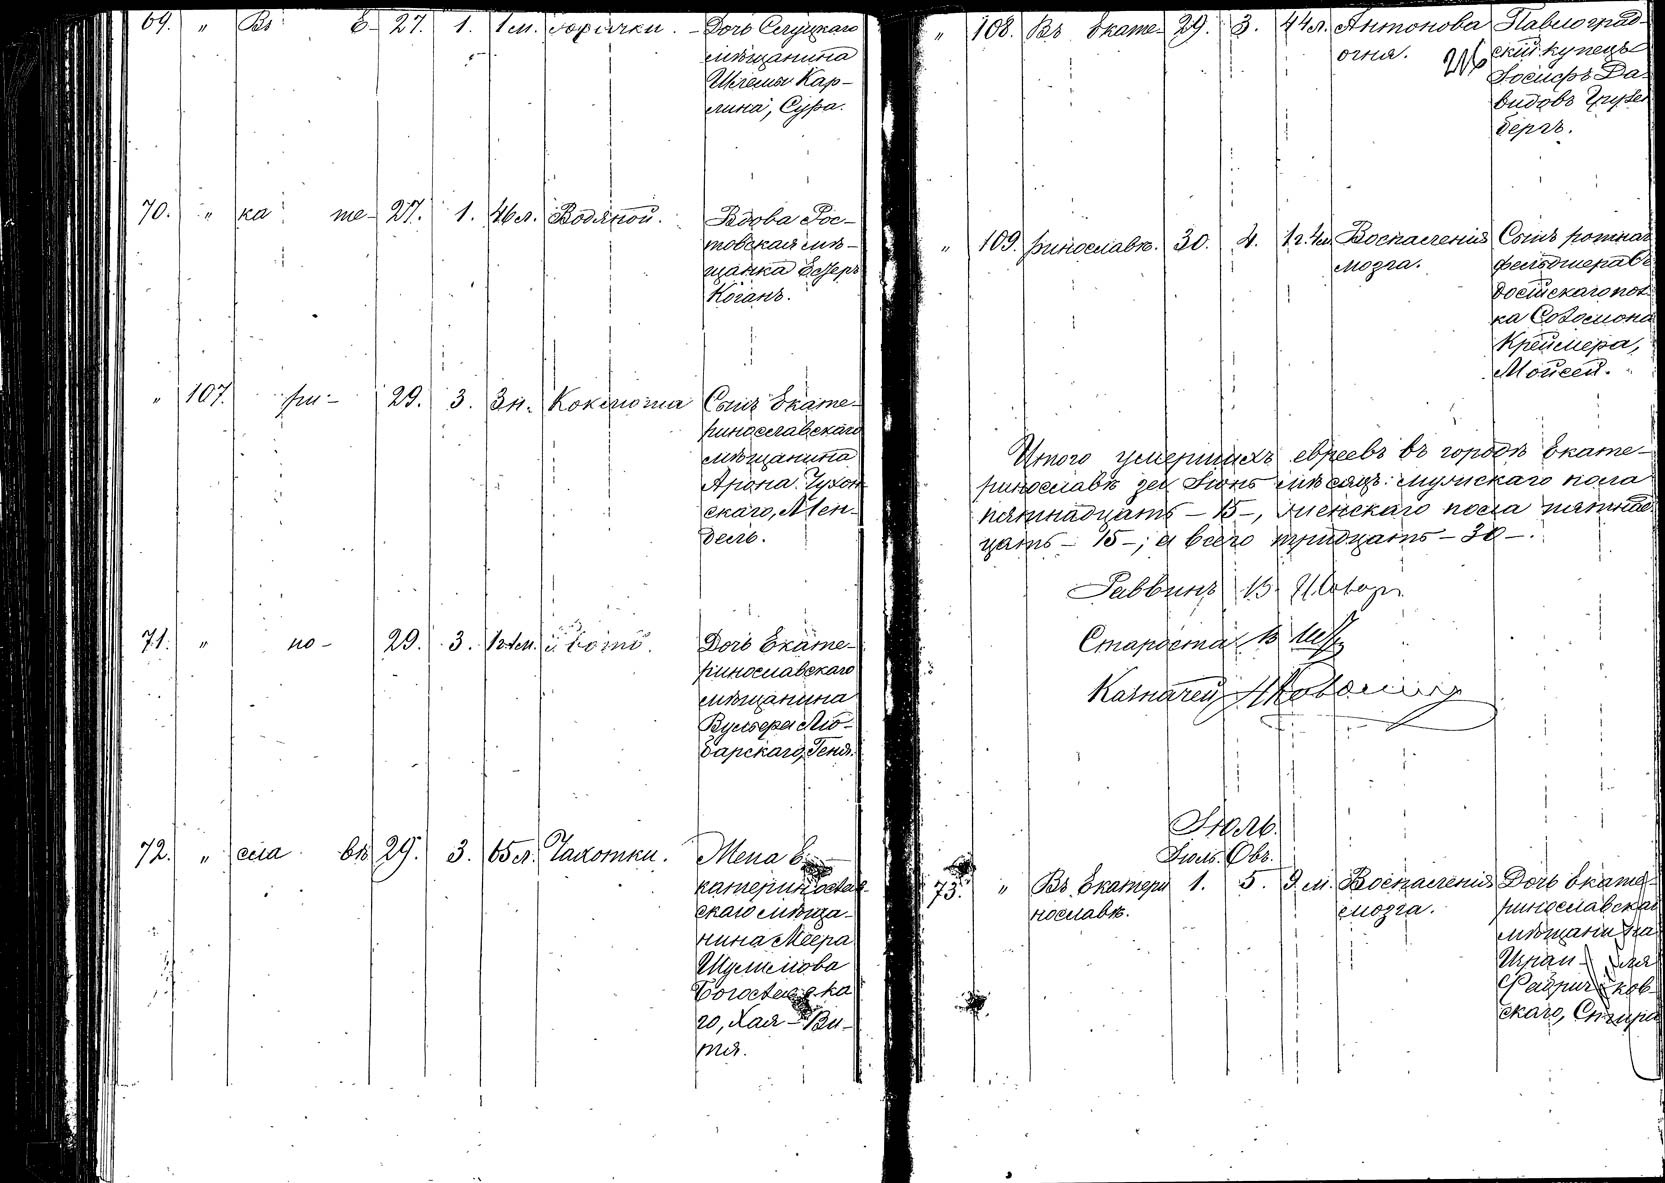 69. " Въ Е- 27. 1. 1 м. горячки. Дочь Слуцкаго
мѣщанина
Шлемы Кар-
лина, Сура.
70. " ка те- 27. 1. 46 л. Водяной. Вдова Рос-
товская мѣ-
щанка Естеръ
Коганъ.
" 107. ри- 29. 3. 3 н. Коклюша Сынъ Екате-
ринославскаго
мѣщанина
Арона Чухон-
скаго, Мен-
дель.
71. " но- 29. 3. Дочь Екате-
ринославскаго
мѣщанина
Вульфа Лю-
барскаго, Геня.
72. " сла вѣ 29. 3. 65 л. Чахотки. Жена Е-
катеринослав-
скаго мѣща-
нина Меера
Шулимова
Богославска
го, Хая-Ви-
тя.
216
" 108. Въ Екате- 29. 3. 44 л. Антонова Павлоград-
огня. скій купецъ
Іосифъ Да-
видовъ
бергъ.
" 109. ринославѣ. 30. 4. 1 г. 4 м. Воспаленія Сынъ ротнаго
мозга. фельдшера
ка Соломона
Креймера,
Мойсей.
Итого умершихъ евреевъ въ городѣ Екате-
ринославѣ за Іюнь мѣсяцъ: мужскаго пола
пятнадцать - 15 -, женскаго пола пятнад
цать - 15 -; а всего тридцать - 30 -.
Раввинъ
Староста
Казначей
Іюль.
Іюль. Овъ.
73. " Въ Екатери 1. 5. 9 м. Воспаленія Дочь Екате-
нославѣ. мозга. ринославскаго
мѣщанина
скаго, Спира